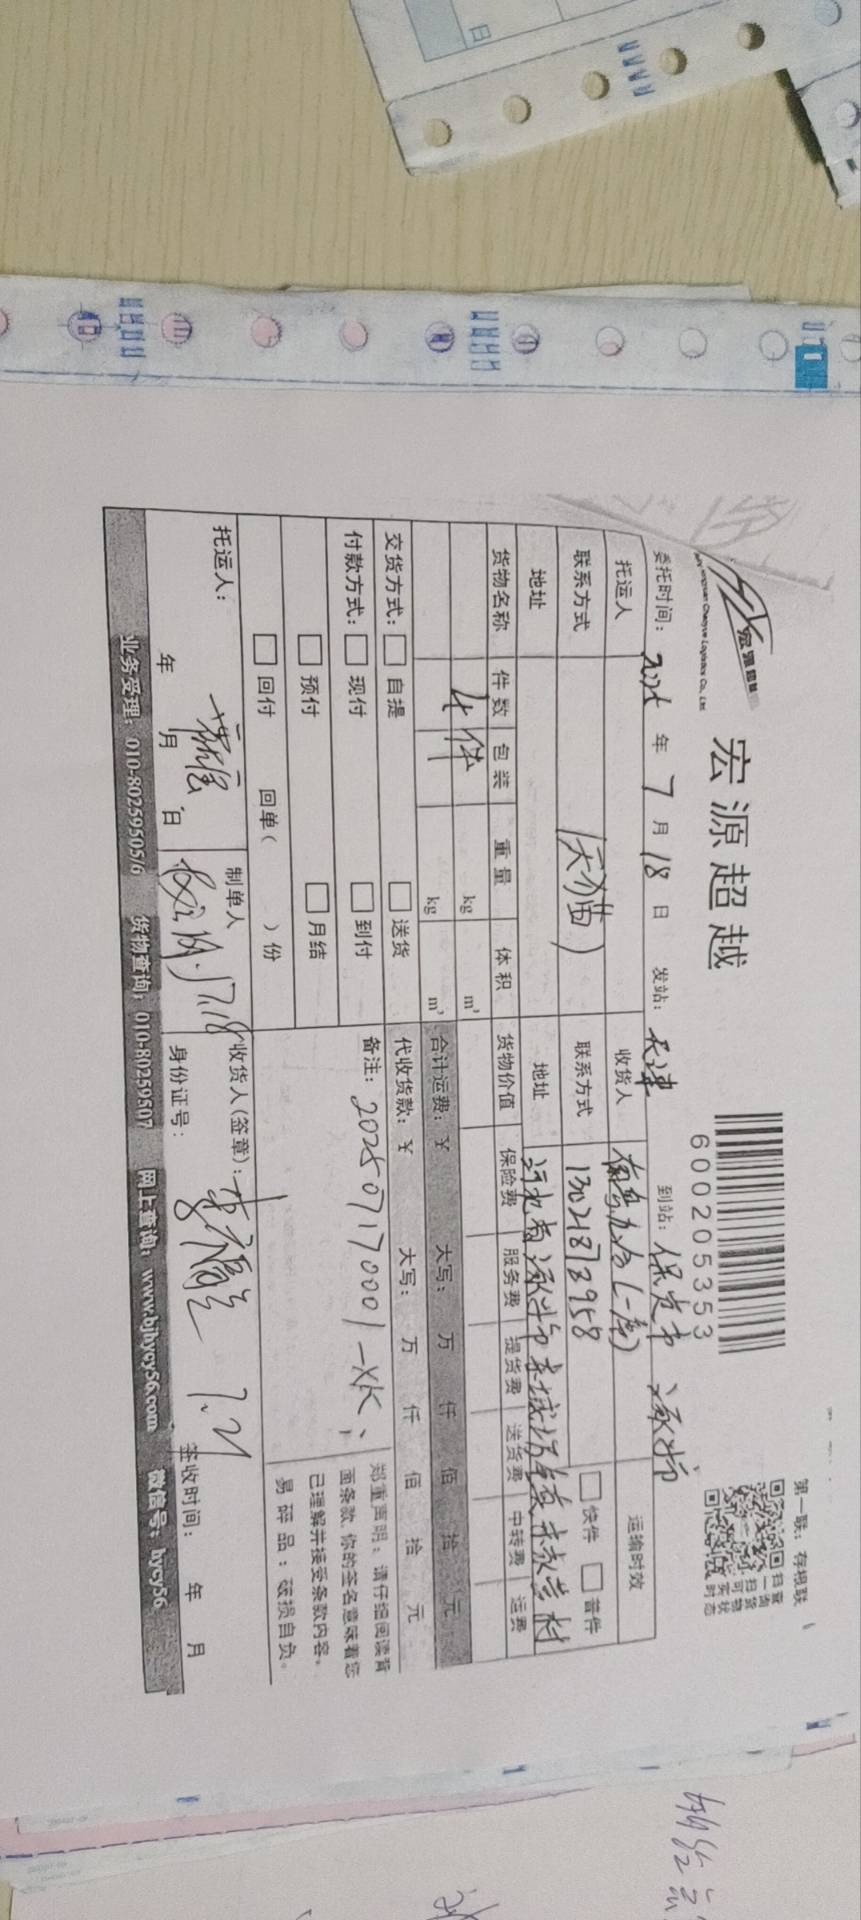 第一联：存根联
宏源超越
宏源超越
6000205353
扫一扫可实时
查询货物状态
委托时间： 年 7 月 18 日 发站：天津 到站：保定市 涿州
托运人 收货人 运输时效
联系方式 (天猫) 联系方式 13021878958 快件 普件
地址 地址 河北省涿州市东城坊镇
货物名称 件数 包装 重量 体积 货物价值 保险费 服务费 提货费 送货费 中转费 运费
4件 kg m³
kg m³ 合计运费：¥ 大写： 万 仟 佰 拾 元
交货方式： 自提 送货 代收货款：¥ 大写： 万 仟 佰 拾 元
付款方式： 现付 到付 备注：202507170001-XK、
预付 月结
回付 回单（ ）份
郑重声明：请仔细阅读背
面条款，你的签名意味着您
已理解并接受条款内容。
易碎品：破损自负。
托运人： 制单人 收货人(签章)：
年 月 日 7.18 身份证号： 7.21 签收时间： 年 月
业务受理：010-80259505/6 货物查询：010-80259507 网上查询：www.bjhycy56.com 微信号：hycy56